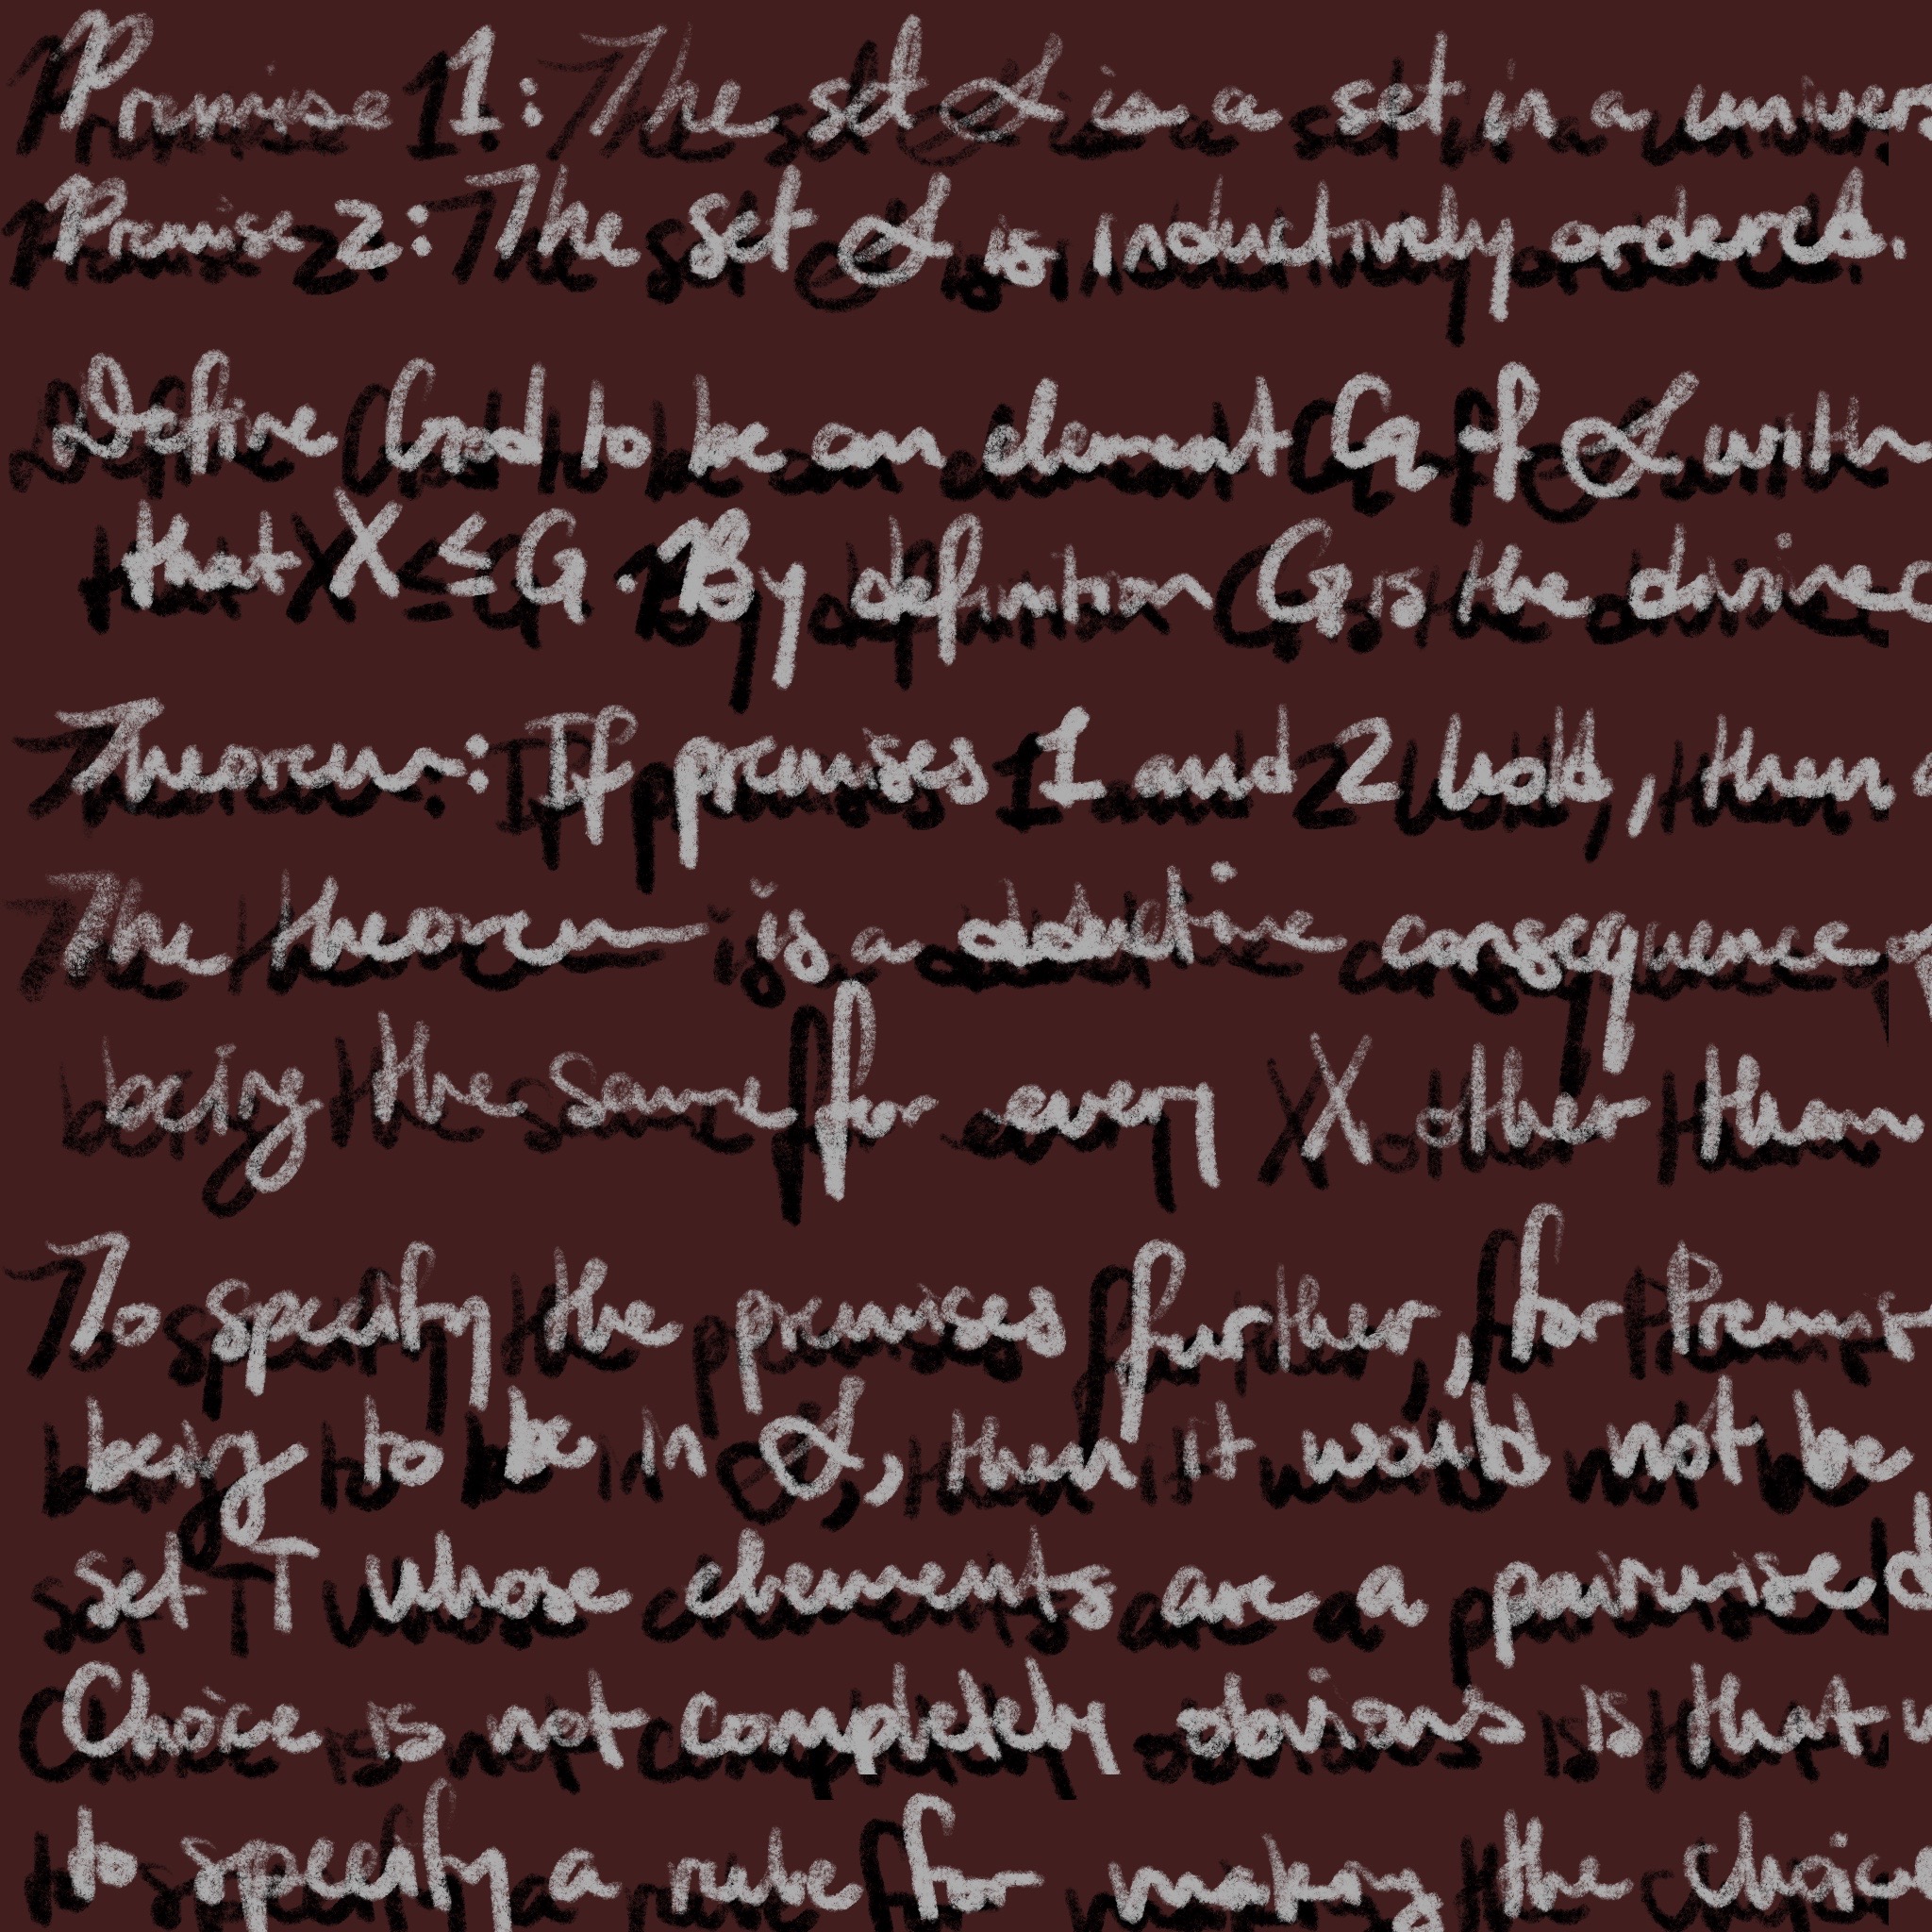 Premise 1: The set ℒ is a set in a univers
Premise 2: The set ℒ is inductively ordered.
Define God to be an element G of ℒ with
that X ≤ G. By definition G is the divine
Theorem: If premises 1 and 2 hold, then
The theorem is a deductive consequence
being the same for every X other than
To specify the premises further, for Premis
being to be in ℒ, then it would not be
set T whose elements are a pairwise d
Choice is not completely obvious is that
to specify a rule for making the choice